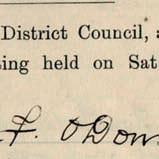 District Council, a
ing held on Sat
F. O'Don